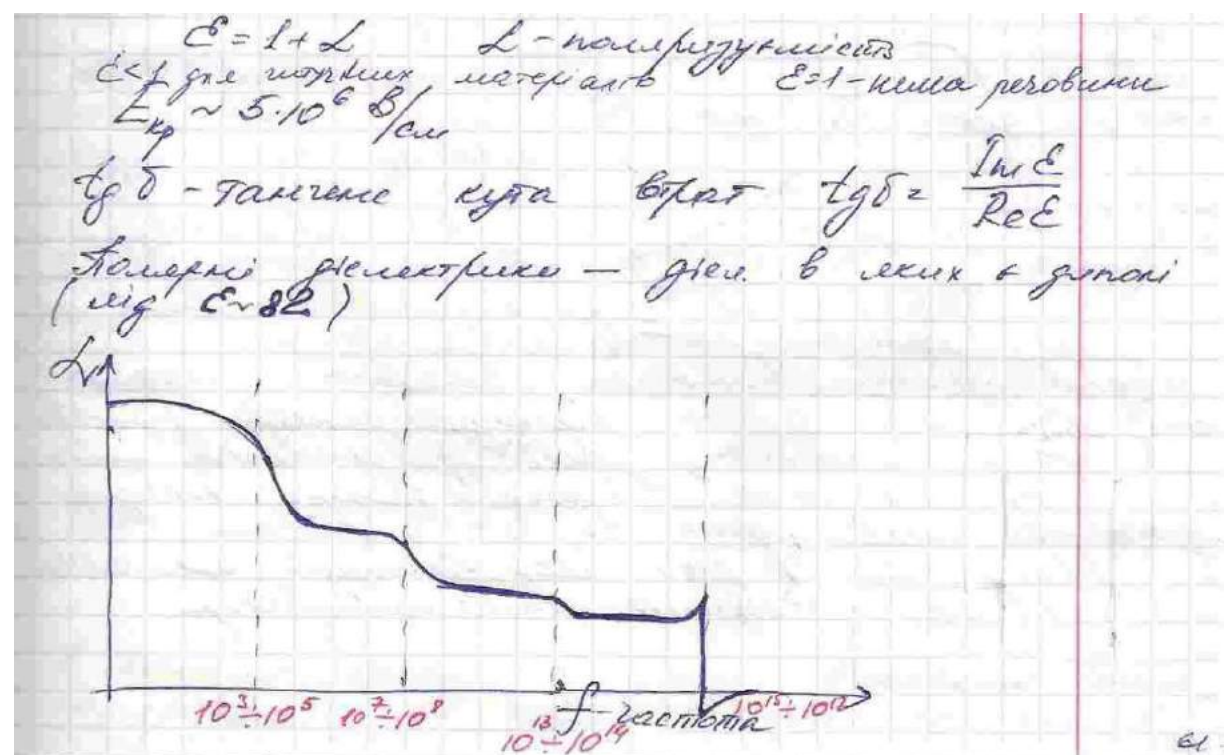 ε = 1 + α α - поляризуємість
ε < 1 для штучних матеріалів ε=1 - нема речовини
Eкр ~ 5·10⁶ В/см
tg δ - тангенс кута втрат tgδ = Im ε / Re ε
Полярні діелектрики — діел. в яких є диполі
(лід ε~82)
α
10³÷10⁵ 10⁷÷10⁸ 10¹³÷10¹⁴ f - частота 10¹⁵÷10¹²